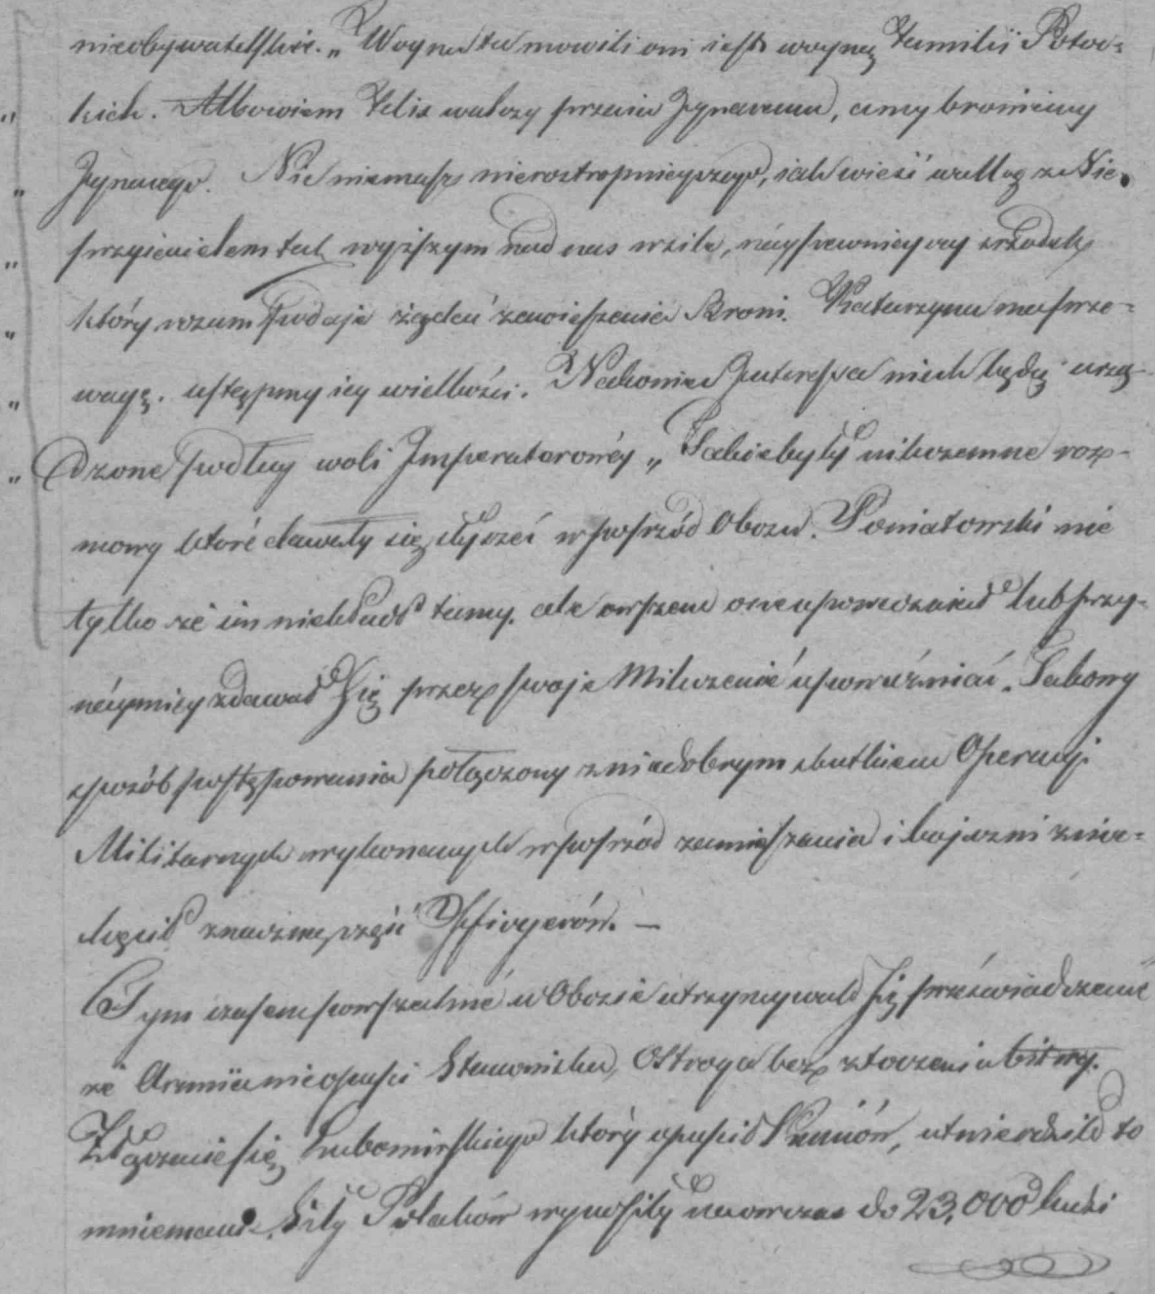 nieobywatelskie. „ Woyna ta mowili oni iest woyną Familii Potoc-
„ kich. Albowiem Felix walczy przeciw Ignacemu, a my bronimy
„ Ignacego. Nic niemasz nieroztropnieyszego, iak wieść walkę z Nie-
„ przyiacielem tak wyższym nad nas w sile, náypewnieyszy srzodek
„ który rozum podaje żądać zawieszenia Broni. Katarzyna ma prze-
„ wagę. ustąpmy iey wielkości. Nakoniec Interessa niech będą urzą-
„ dzone podług woli Imperatorowéy „ Takie były nikczemne roz-
mowy które dawały się słyszéć wpośrzód Obozu. Poniatowski nie
tylko że im niekładł tamy. ale owszem one upowazniał lub przy-
náymniey zdawał się przez swoje Milczenie upoważniać. Takowy
sposób postępowania połączony z niedobrym skutkiem Operacyi
Militarnych wykonanych wpośrzód zamieszania i bojazni znie-
chęcił znaczną część Officyerów. —
Tym czasem powszechné w Obozie utrzymywało się przeświadczenie
że Armiia nieopuści Stanowiska Ostroga bez stoczenia bitwy.
Złączenie się Lubomirskiego który opuścił Kuniów, utwierdziło to
mniemanie. Siły Polaków wynosiły naowczas do 23,000 ludzi